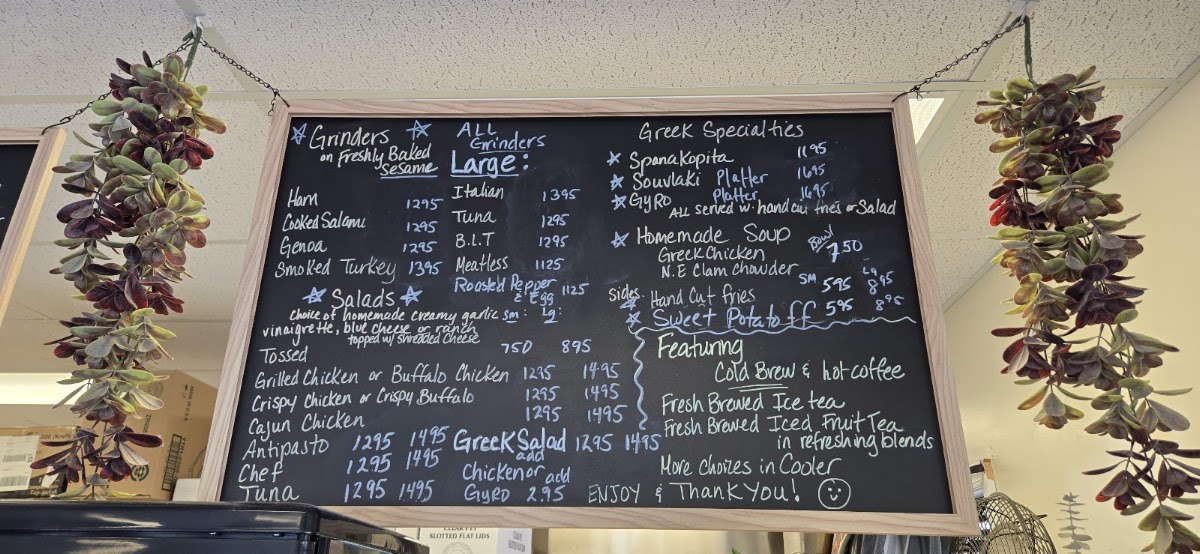 Grinders
on Freshly Baked
Sesame
Ham 1295
Cooked Salami 1295
Genoa 1295
Smoked Turkey 1395
ALL
Grinders
Large:
Italian 1395
Tuna 1295
B.L.T 1295
Meatless 1125
Roasted Pepper
& Egg 1125
Salads
choice of homemade creamy garlic
vinaigrette, blue cheese or ranch
topped w/ shredded cheese
sm: Lg:
Tossed 750 895
Grilled Chicken or Buffalo Chicken 1295 1495
Crispy Chicken or Crispy Buffalo 1295 1495
Cajun Chicken 1295 1495
Antipasto 1295 1495
Chef 1295 1495
Tuna 1295 1495
Greek Salad 1295 1495
add
Chicken or add
Gyro 2.95
Greek Specialties
Spanakopita 1195
Souvlaki Platter 1695
Gyro Platter 1695
ALL served w. hand cut fries or Salad
Homemade Soup Bowl
Greek Chicken 7.50
N.E Clam Chowder
SM Lg
sides:
Hand Cut fries 595 895
Sweet Potato ff 595 895
Featuring
Cold Brew & hot coffee
Fresh Brewed Ice tea
Fresh Brewed Iced Fruit Tea
in refreshing blends
More choices in Cooler
ENJOY & Thank You!
CLEAR PET
SLOTTED FLAT LIDS